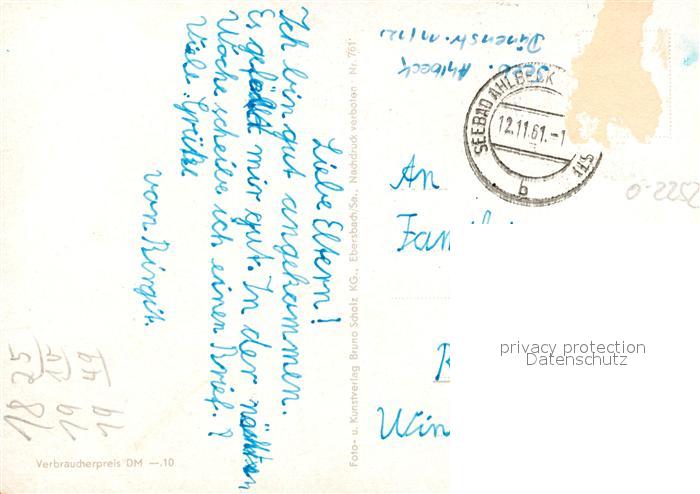 Liebe Eltern!
Ich bin gut angekommen.
Es gefällt mir gut. In der nächsten
Woche scheibe ich einen Brief.
Viele Grüße
von Birgit.
Verbraucherpreis DM —.10
Foto- u. Kunstverlag Bruno Scholz KG., Ebersbach/Sa., Nachdruck verboten Nr. 761
Seeb. Ahlbeck
Dünenstr.
SEEBAD AHLBECK
12.11.61.-1
b
An
Fam
Win
privacy protection
Datenschutz
2522-0
18 25
19 14
19 49